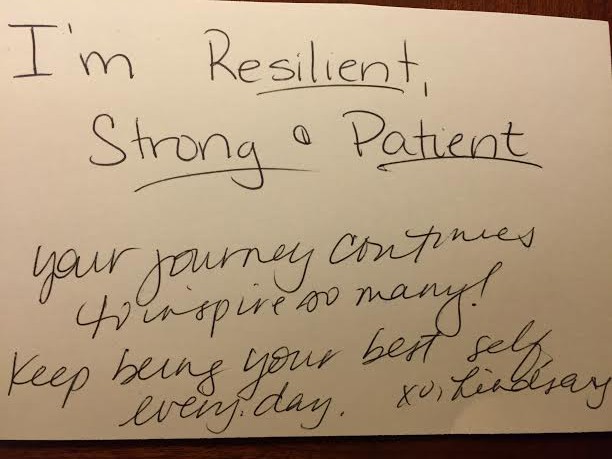 I'm Resilient,
Strong & Patient
your journey continues
to inspire so many!
Keep being your best self
every day. xo, Lindsay